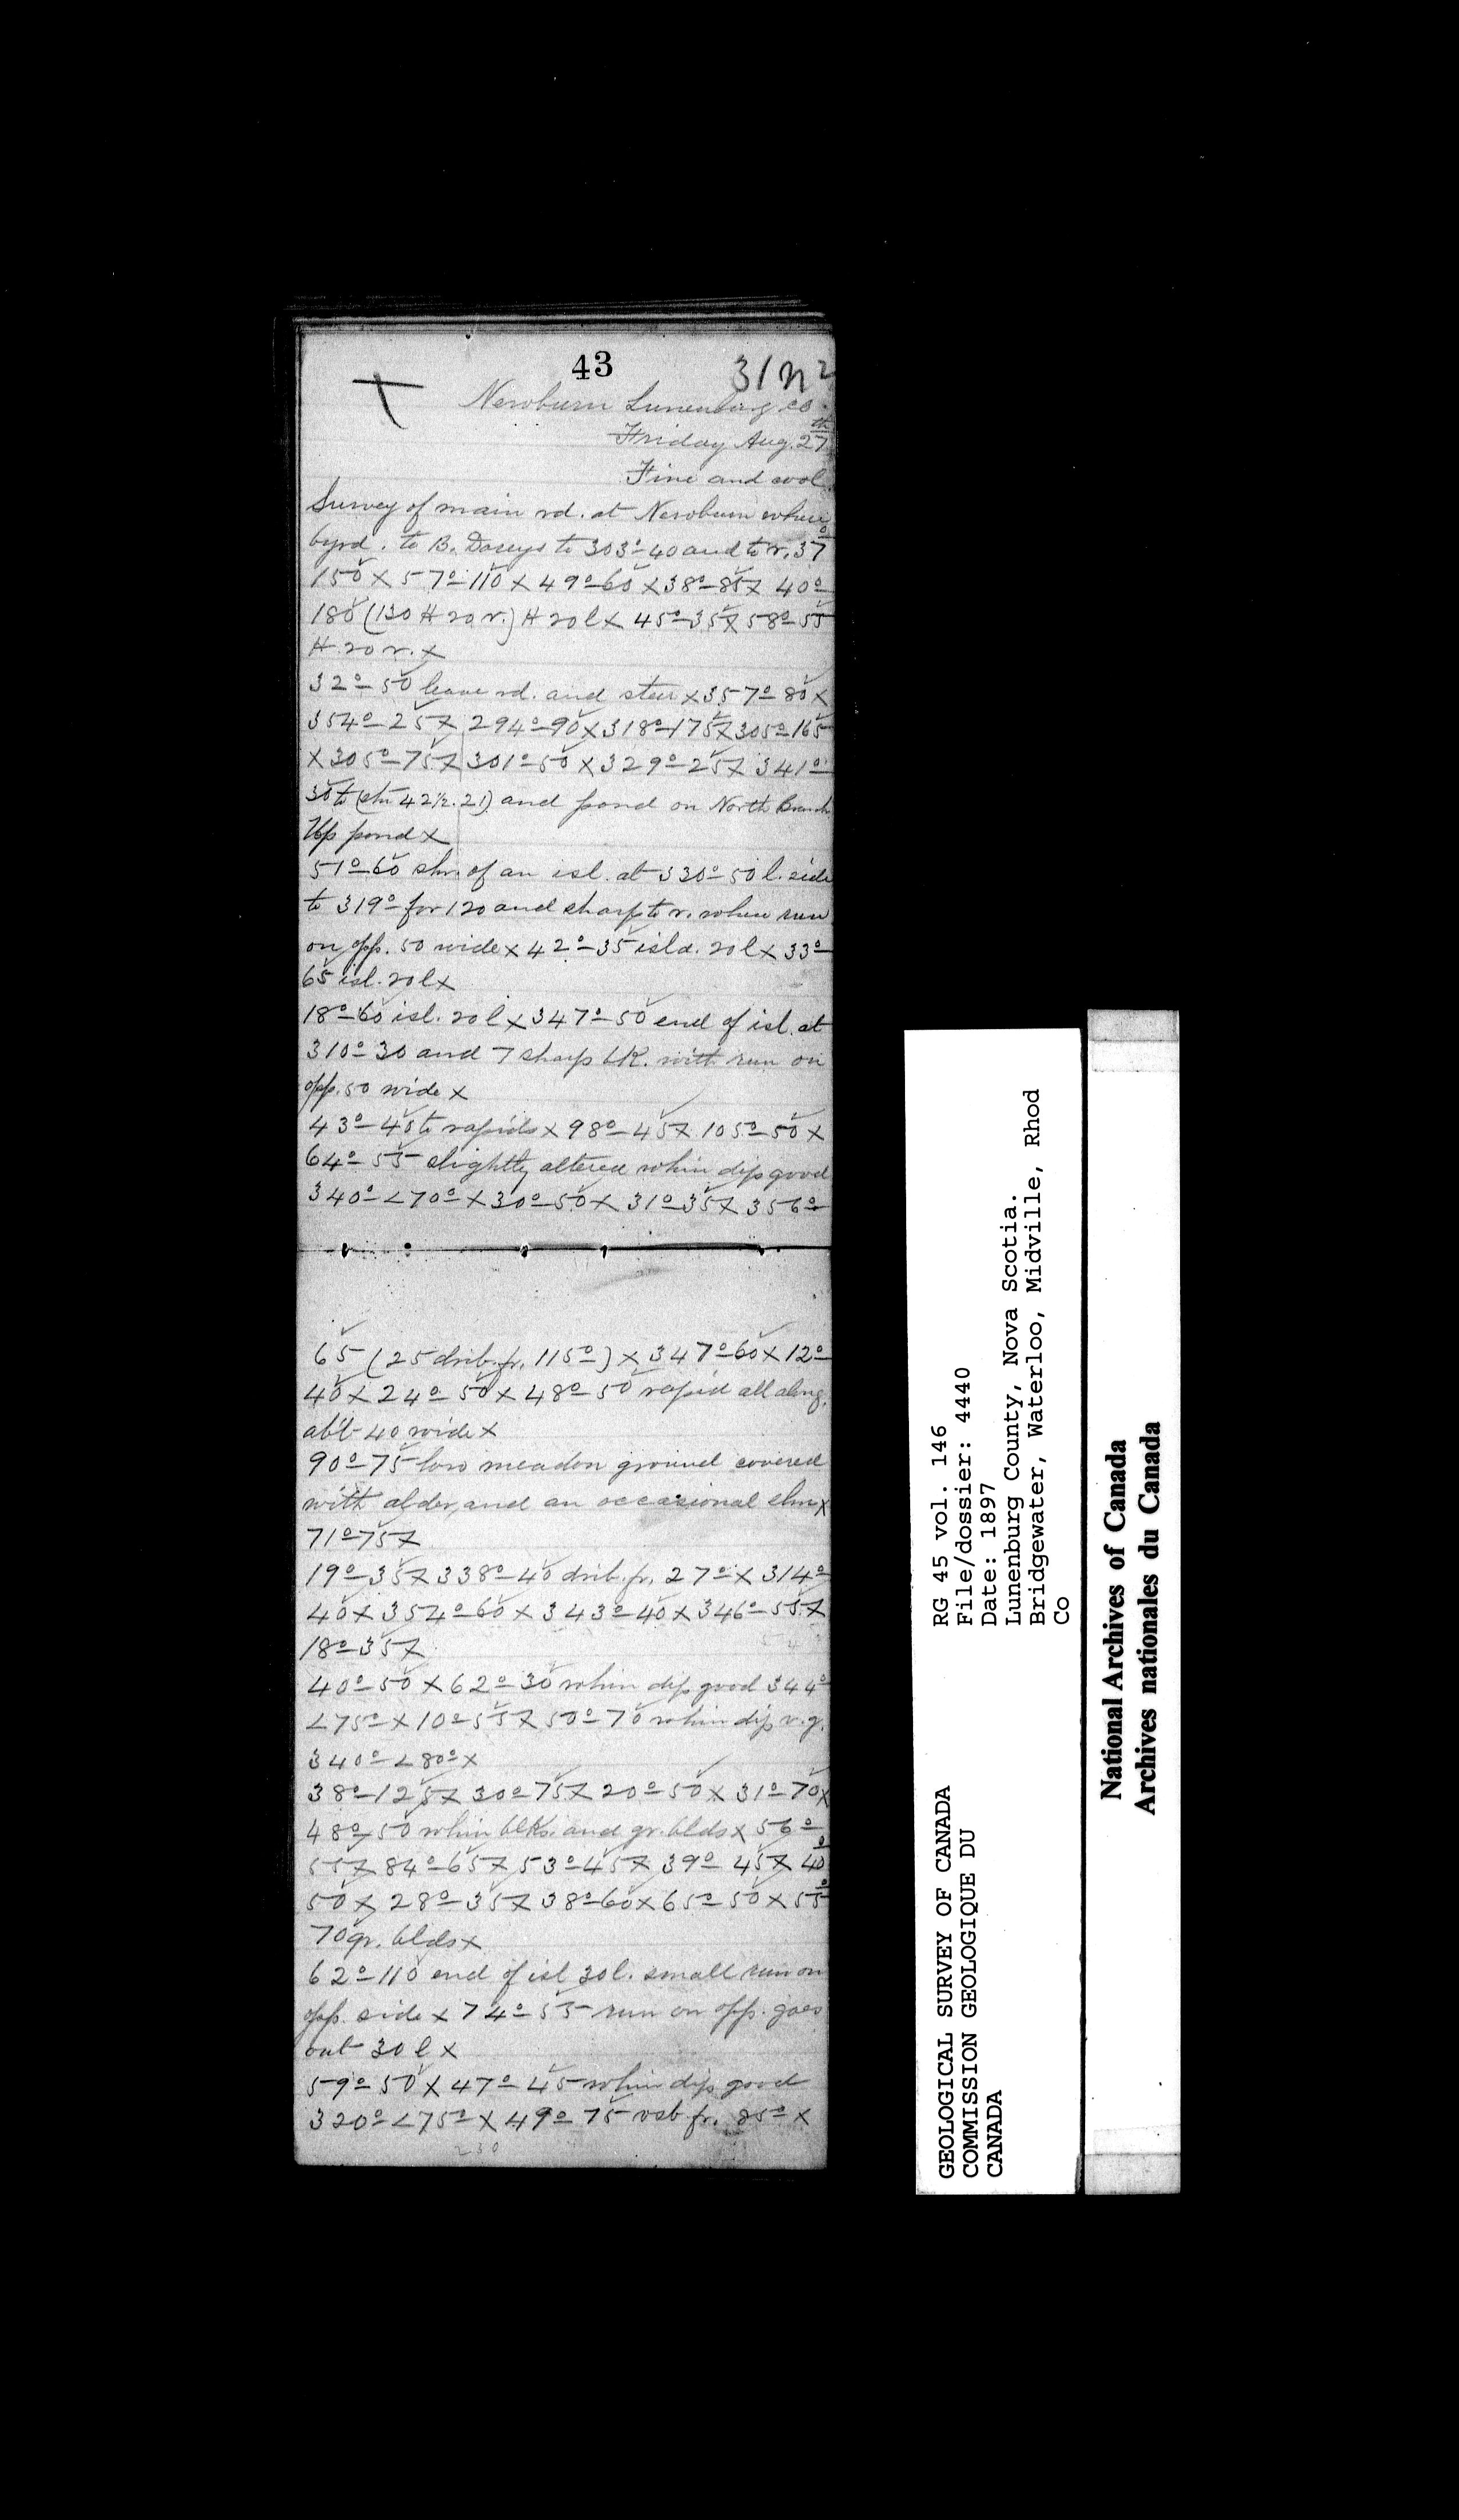 43
31 n 2
Newburn Lunenburg co.
Friday Aug. 27th
Fine and cool.
Survey of main rd. at Newburn where
byrd. to B. Daseys to 303°-40 and to r. 37°
150 x 57°-110 x 49°-60 x 38°-85 x 40°
180 (130 H 20 r.) H 20 l x 45°-35 x 58°-55
H 20 r. x
32°-50 leave rd. and steer x 357°-80 x
354°-25 x 294°-90 x 318°-175 x 305°-165
x 305°-75 x 301°-50 x 329°-25 x 341°
30 to (stn 42½.21) and pond on North Branch
Up pond x
51°-60 shr. of an isl. at 330°-50 l. side
to 319° for 120 and sharp to r. where run
on opp. 50 wide x 42°-35 isld. 20 l x 33°
65 isl. 20 l x
18°-60 isl. 20 l x 347°-50 end of isl. at
310°-30 and 7 sharp bk. with run on
opp. 50 wide x
43°-40 to rapids x 98°-45 x 105°-50 x
64°-55 slightly altered whin dip good
340° <70° x 30°-50 x 31°-35 x 356°
65 (25 drib. fr. 115°) x 347°-60 x 12°
40 x 24°-50 x 48°-50 rapid all along,
abt 40 wide x
90°-75 low meadow ground covered
with alder, and an occasional elm x
71°-75 x
19°-35 x 338°-40 drib. fr. 27° x 314°
40 x 354°-60 x 343°-40 x 346°-55 x
18°-35 x
40°-50 x 62°-30 whin dip good 344°
<75° x 10°-55 x 50°-70 whin dip v.g.
340° <80° x
38°-125 x 30°-75 x 20°-50 x 31°-70 x
48°-50 whin blks. and gr. blds x 56°
55 x 84°-65 x 53°-45 x 39°-45 x 40°
50 x 28°-35 x 38°-60 x 65°-50 x 55°
70 gr. blds x
62°-110 end of isl 30 l. small run on
opp. side x 74°-55 run on opp. goes
out 30 l x
59°-50 x 47°-45 whin dip good
320° <75° x 49°-75 vsb fr. 85° x
230
GEOLOGICAL SURVEY OF CANADA
COMMISSION GEOLOGIQUE DU
CANADA
RG 45 vol. 146
File/dossier: 4440
Date: 1897
Lunenburg County, Nova Scotia.
Bridgewater, Waterloo, Midville, Rhod
Co
National Archives of Canada
Archives nationales du Canada